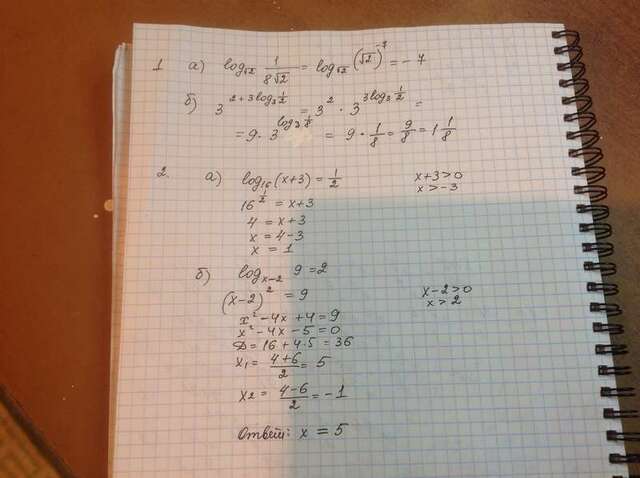 1 а) log_√2 1/(8√2) = log_√2 (√2)^-7 = -7
б) 3^(2+3log_3 1/2) = 3^2 · 3^(3log_3 1/2) =
= 9 · 3^(log_3 1/8) = 9 · 1/8 = 9/8 = 1 1/8
2. а) log_16 (x+3) = 1/2 x+3>0
16^(1/2) = x+3 x>-3
4 = x+3
x = 4-3
x = 1
б) log_x-2 9 = 2
(x-2)^2 = 9 x-2>0
x^2-4x+4=9 x>2
x^2-4x-5=0
D=16+4·5=36
x1 = (4+6)/2 = 5
x2 = (4-6)/2 = -1
Ответ: x = 5